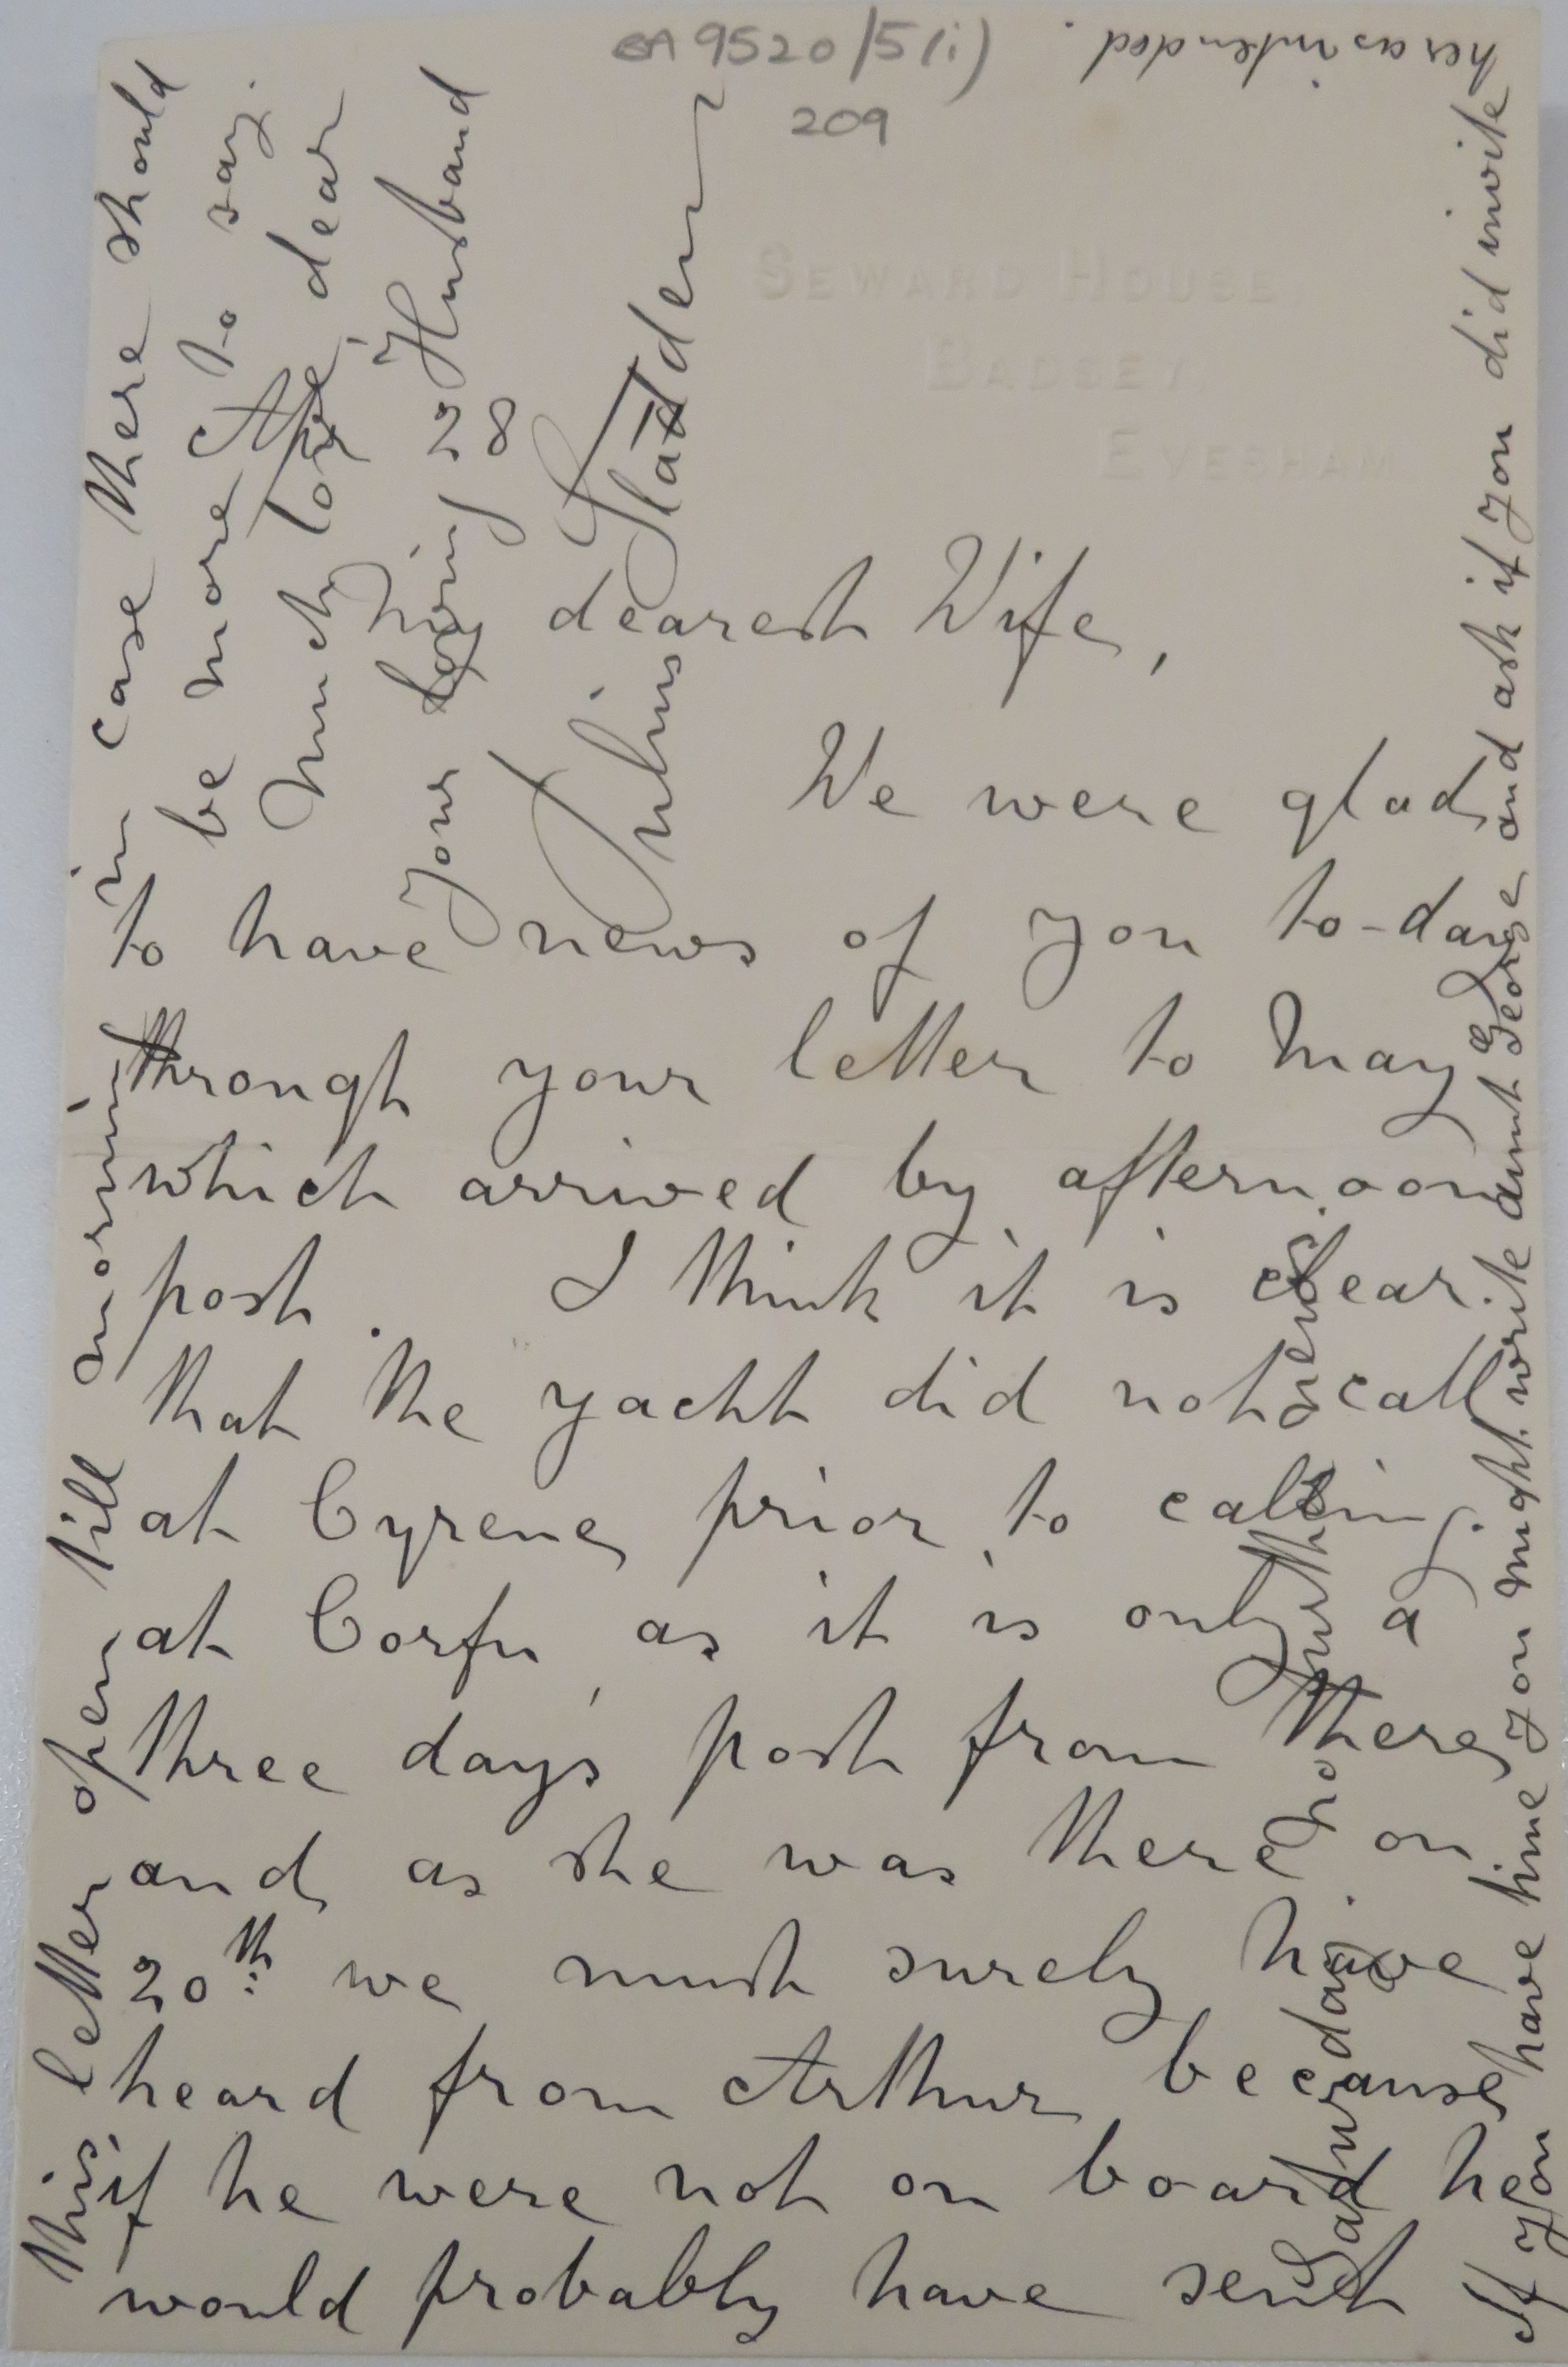 BA 9520/5(i)
209
SEWARD HOUSE,
BADSEY,
EVESHAM.
Apr. 28
My dearest Wife,
We were glad
to have news of you to-day
through your letter to May
which arrived by afternoon
post. I think it is clear
that the yacht did not call
at Cyrene prior to calling
at Corfu, as it is only a
three days post from there,
and as she was there on
20th we must surely have
heard from Arthur, because
if he were not on board he
would probably have sent
this letter open till morning in case there should
be more to say.
Much love, dear
Your loving Husband
Julius Sladden
Saturday. No further news.
If you have time you might write aunt George and ask if you did invite
her as intended.